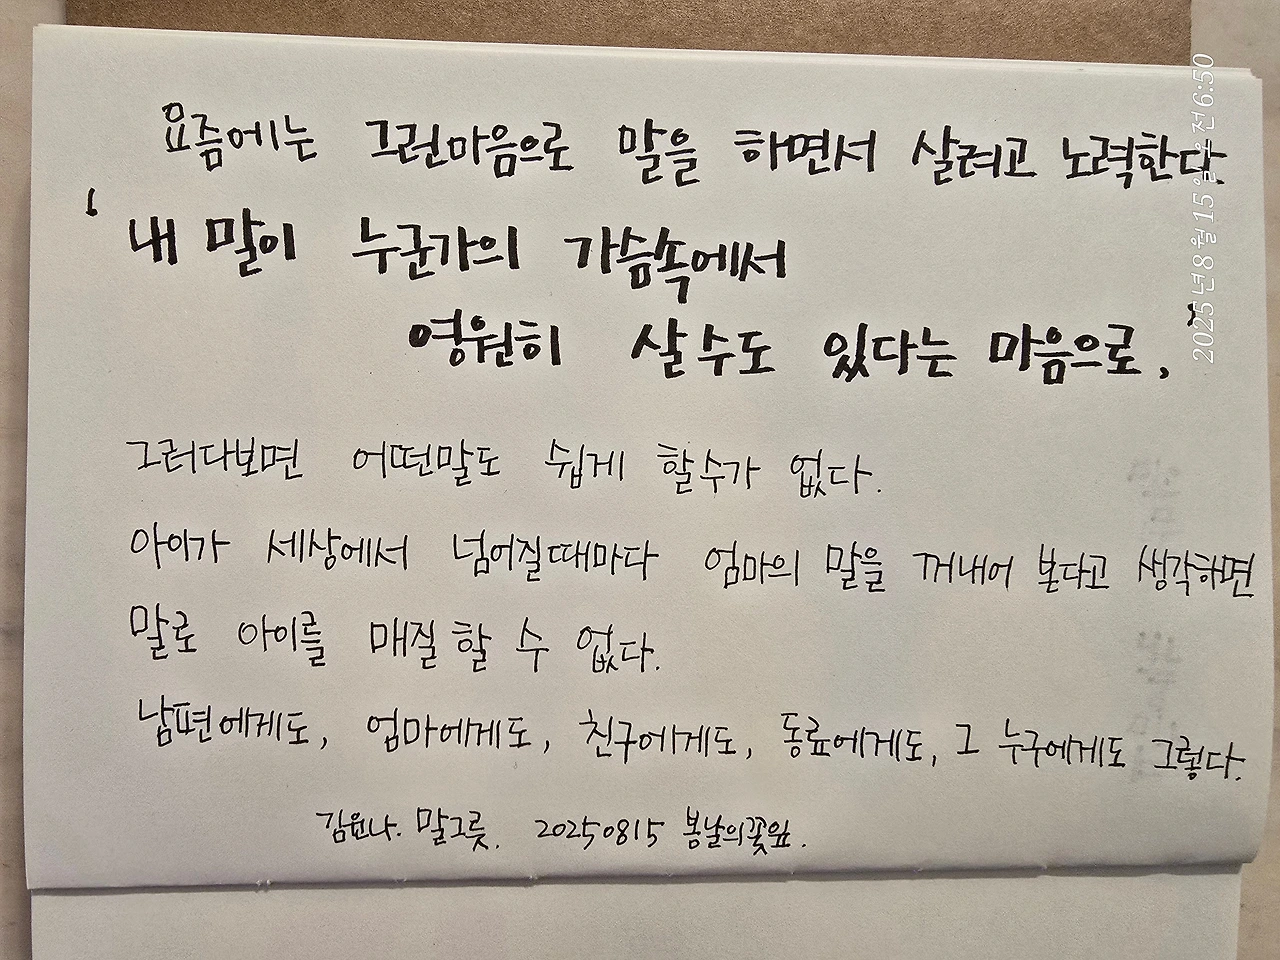 요즘에는 그런마음으로 말을 하면서 살려고 노력한다.
‘내 말이 누군가의 가슴속에서
영원히 살 수도 있다는 마음으로,’
그러다보면 어떤말도 쉽게 할수가 없다.
아이가 세상에서 넘어질때마다 엄마의 말을 꺼내어 본다고 생각하면
말로 아이를 매질 할 수 없다.
남편에게도, 엄마에게도, 친구에게도, 동료에게도, 그 누구에게도 그렇다.
김윤나. 말그릇. 20250815 봄날의꽃잎.
2025년 8월 15일 오전 6:50